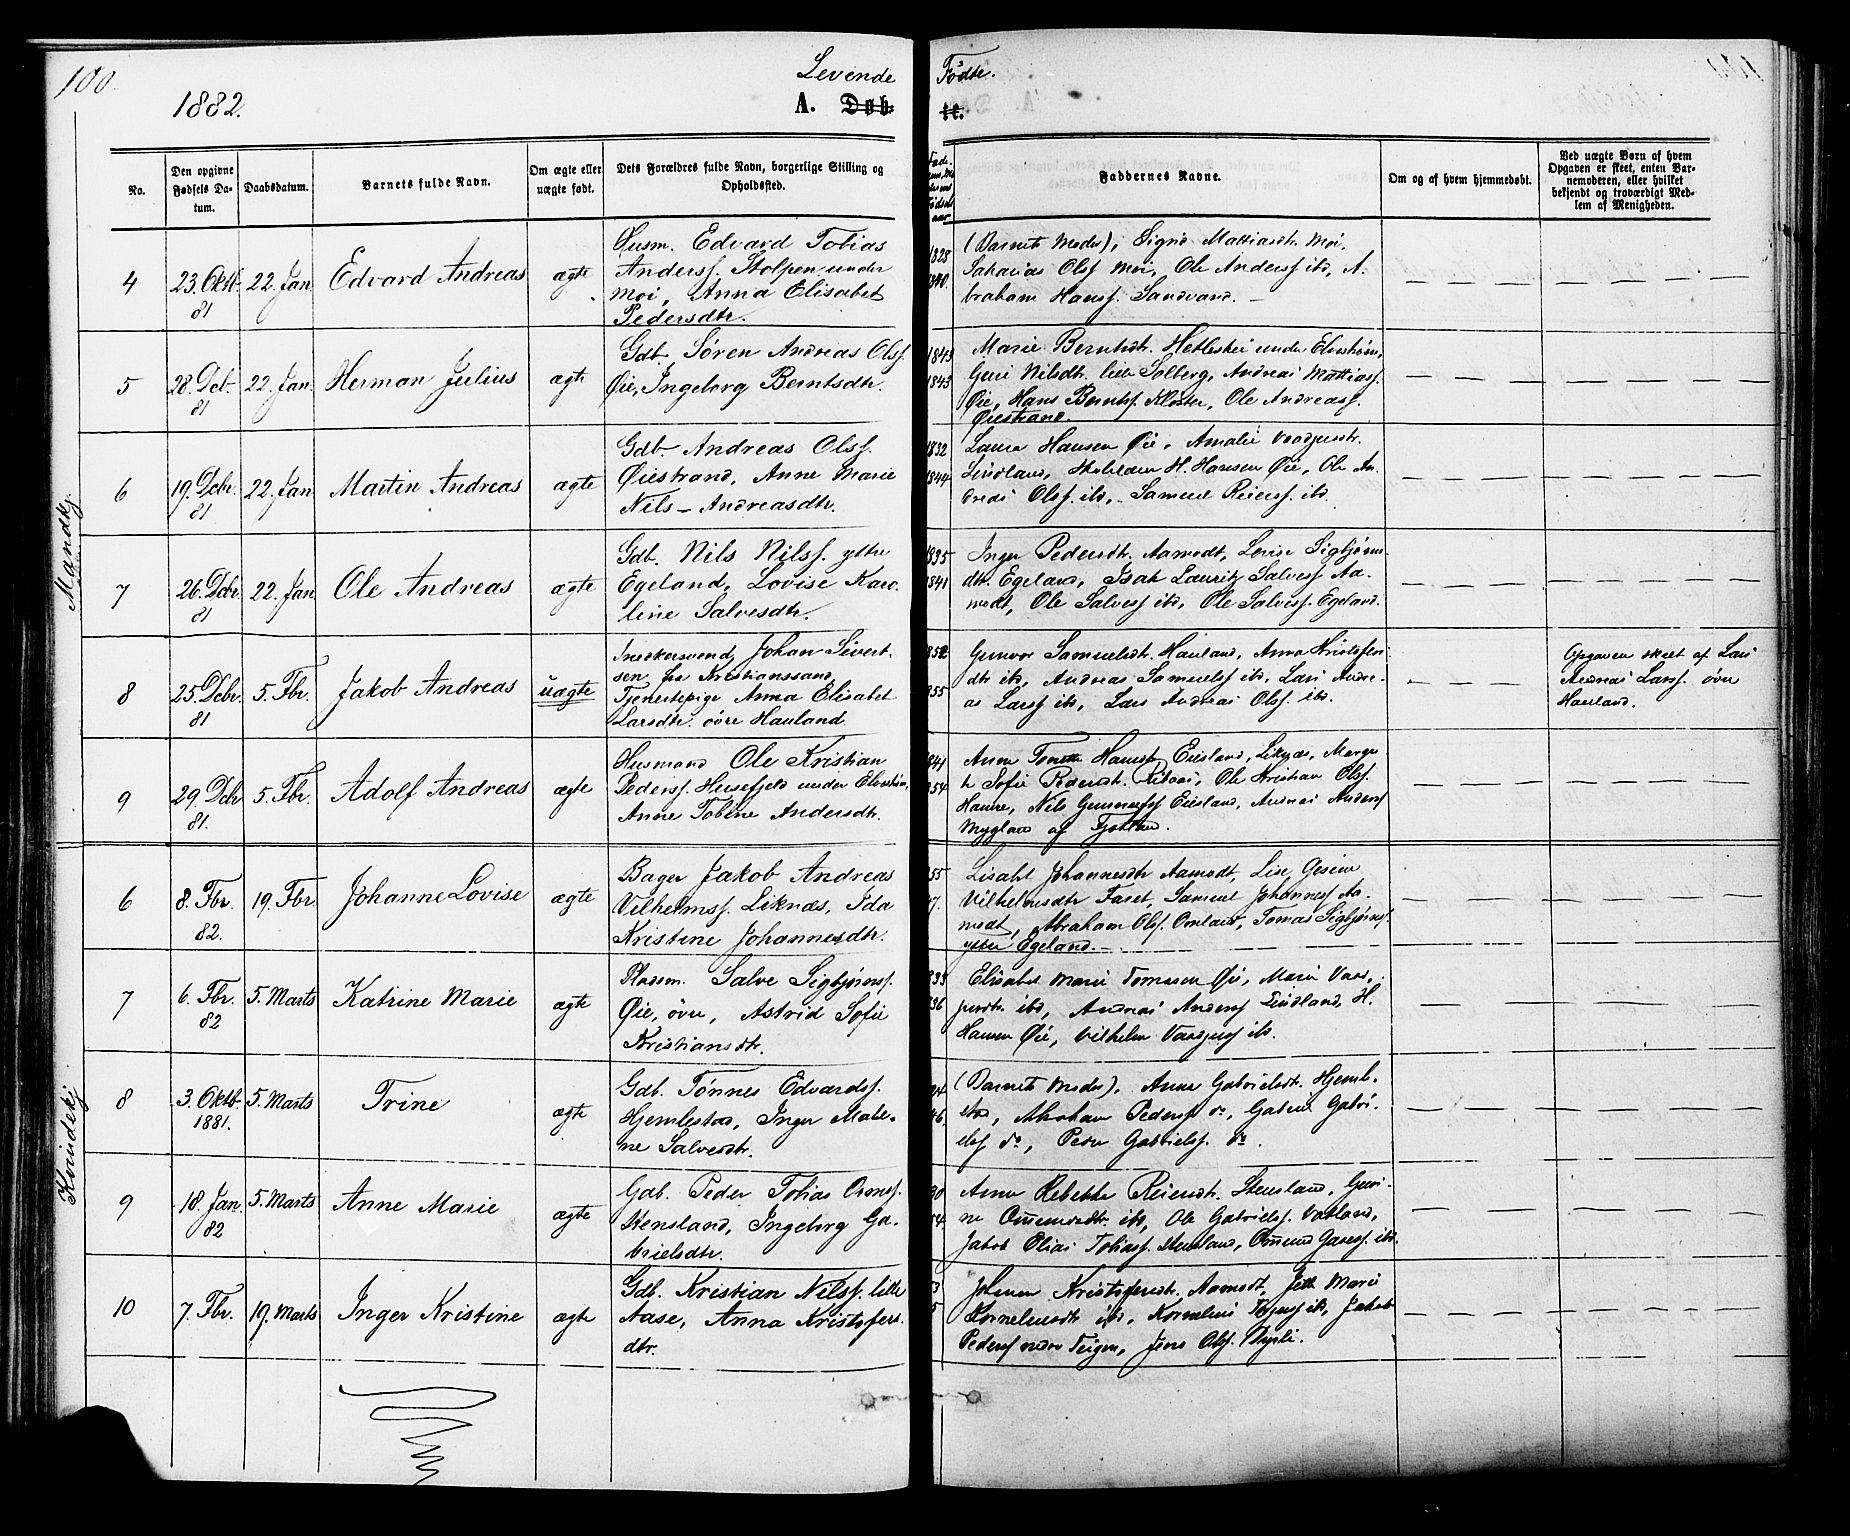 100.
1882.
Levende
Fødte.
A. Døb
te.
No.
Den opgivne Fødsels Datum.
Daabsdatum.
Barnets fulde Navn.
Om ægte eller uægte født.
Dets Forældres fulde Navn, borgerlige Stilling og Opholdssted.
Faddernes Navne.
Om og af hvem hjemmedøbt.
Ved uægte Børn af hvem Opgaven er skeet, enten Barnemoderen, eller hvilket bekjendt og troværdigt Medlem af Menigheden.
Mandkj.
4
23. Oktb. 81
22. Jan
Edvard Andreas
ægte
Husm. Edvard Tobias
Anderss. Stolpen under
Moi, Anna Elisabet
Pedersdtr.
1828
1840.
(Barnets Moder), Signe Mattiasdtr. Moi,
Sakarias Olsf. Moi, Ole Andersf ibd, A-
braham Hansf. Sandvand.
5
28. Dcb. 81
22. Jan.
Herman Julius
ægte
Gdb. Søren Andreas Olsf.
Øie, Ingeborg Berntsdtr.
1843
1843
Marie Berntsdtr. Hetleskei under Elvestrøm,
Guri Nilsdtr. lille Solberg, Andreas Mattiasf.
Øie, Hans Berntsf. Kloster, Ole Andreasf.
Øiestrand.
6
19. Dcbr. 81
22. Jan
Martin Andreas
ægte
Gdb. Andreas Olsf.
Øiestrand, Anne Marie
Nils-Andreasdtr.
1832
1844
Laura Hansen Øie, Amalie
Lindland, H. Hansen Øie, Ole An-
dreas Olsf. ibd, Samuel Reiersf. ibd.
7
26. Dcbr. 81
22. Jan
Ole Andreas
ægte
Gdb. Nils Nilsf. ytre
Egeland, Lovise Karo-
line Salvesdtr.
1835
1841
Inger Pedersdtr. Aamodt, Lovise Sigbjørns-
dtr. Egeland, Isak Lauritz Salvesf Aa-
modt, Ole Salvesf ibd, Ole Salvesf. Egeland.
8
25. Dcbr. 81
5. Fbr.
Jakob Andreas
uægte
Snedkersvend Johan Sivert-
sen fra Kristianssand,
Tjenestepige Anna Elisabet
Larsdtr. øvre Hauland
1852
1855
Gunvor Samuelsdtr. Hauland, Anna Kristofers-
dtr ibd, Andreas Samuelsf ibd, Lars Andre-
as Larsf ibd, Lars Andreas Olsf. ibd.
Opgaven skeet af Lars
Andreas Larsf. øvre
Hauland.
9
29. Dcbr 81.
5. Fbr.
Adolf Andreas
ægte
Husmand Ole Kristian
Pedersf. under Elvestrøm,
Anne Tobine Andersdtr.
1841
1854
Anne Tonette Eiesland, Liknæs, Marge-
te Sofie Pedersdtr. Ole Kristian Olsf.
Nils Eiesland, Andreas Andersf
Mygland af Fjotland.
Kvindekj.
6
8. Fbr. 82.
19. Fbr.
Johanne Lovise
ægte
Bager Jakob Andreas
Vilhelmsf. Liknæs, Ida
Kristine Johannesdtr.
55
Lisabet Johannesdtr Aamodt, Lise Gesine
Vilhelmsdtr Faret, Samuel Johannesf Aa-
modt, Abraham Olsf. Omland, Tomas Sigbjørnsf.
ytre Egeland.
7
6. Fbr. 82
5. Marts
Katrine Marie
ægte
Pladsm. Salve Sigbjørnsf.
Øie, øvre, Astrid Sofie
Kristiansdtr.
36
Elisabet Marie Tomassen Øie, Marie Vaad-
jusdtr. ibd, Andreas Andersf Lindland, H.
Hansen Øie, Vilhelm Vaadjusf ibd.
8
3. Oktb. 1881.
5. Marts
Trine
ægte
Gdb. Tønnes Edvardsf.
Hjemlestad, Inger Male-
ne Salvesdtr.
46.
(Barnets Moder), Anna Gabrielsdtr. Hjemle-
stad, Abraham Pedersf do, Gabriel Gabri-
elsf do, Peder Gabrielsf. do.
9
18. Jan. 82
5. Marts
Anne Marie
ægte
Gdb. Peder Tobias Omsf.
Stensland, Ingeborg Ga-
brielsdtr.
Anne Rebekke Reiersdtr. Stensland, Guri-
ne Ommundsdtr. ibd, Ole Gabrielsf. Vatland,
Jakob Elias Tobiasf. Stensland, Ommund ibd.
10
7. Fbr.
19. Marts
Inger Kristine
ægte
Gdb. Kristian Nilsf. lille
Aase, Anna Kristofers-
dtr.
Kristofersdtr. Aamodt, Marie
Kornelius ibd, Jakob
Pedersf nedre Teigen, Jens Olsf.